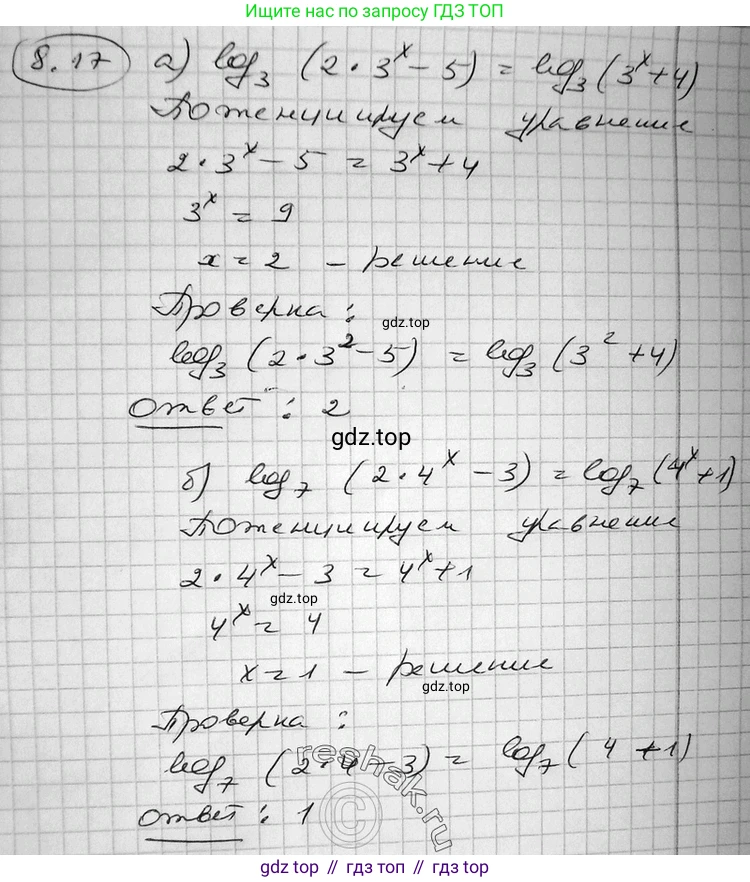 Ищите нас по запросу ГДЗ ТОП
8.17 а) log₃ (2·3ˣ - 5) = log₃ (3ˣ+4)
Потенциируем уравнение
2·3ˣ - 5 = 3ˣ+4
3ˣ = 9
x = 2 - решение
Проверка:
gdz.top
log₃ (2·3²-5) = log₃ (3²+4)
Ответ: 2
gdz.top
б) log₇ (2·4ˣ - 3) = log₇ (4ˣ+1)
Потенциируем уравнение
2·4ˣ - 3 = 4ˣ+1
gdz.top
4ˣ = 4
x = 1 - решение
gdz.top
Проверка:
log₇ (2·4 - 3) = log₇ (4 + 1)
reshak.ru
©
Ответ: 1
gdz top // гдз топ // gdz top